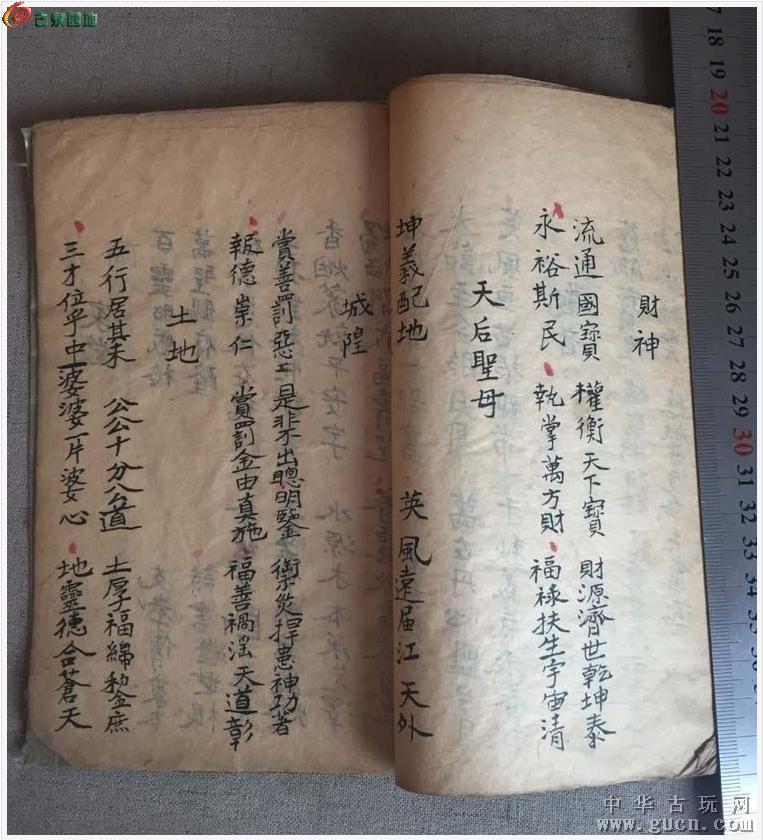 古泉園地
財神
流通國寶 權衡天下寶 財源濟世乾坤泰
永裕斯民 執掌萬方財 福祿扶生宇宙清
天后聖母
坤義配地 英風遠届江天外
城隍
賞善罰惡 是非不出聰明鑒 禦災捍患神功著
報德崇仁 賞罰全由真施 福善禍滛天道彰
土地
五行居其末 公公十分公道 土厚福綿黎庶
三才位乎中 婆婆一片婆心 地靈德合蒼天
17 18 19 20 21 22 23 24 25 26 27 28 29 30 31 32 33
中华古玩网
www.gucn.com